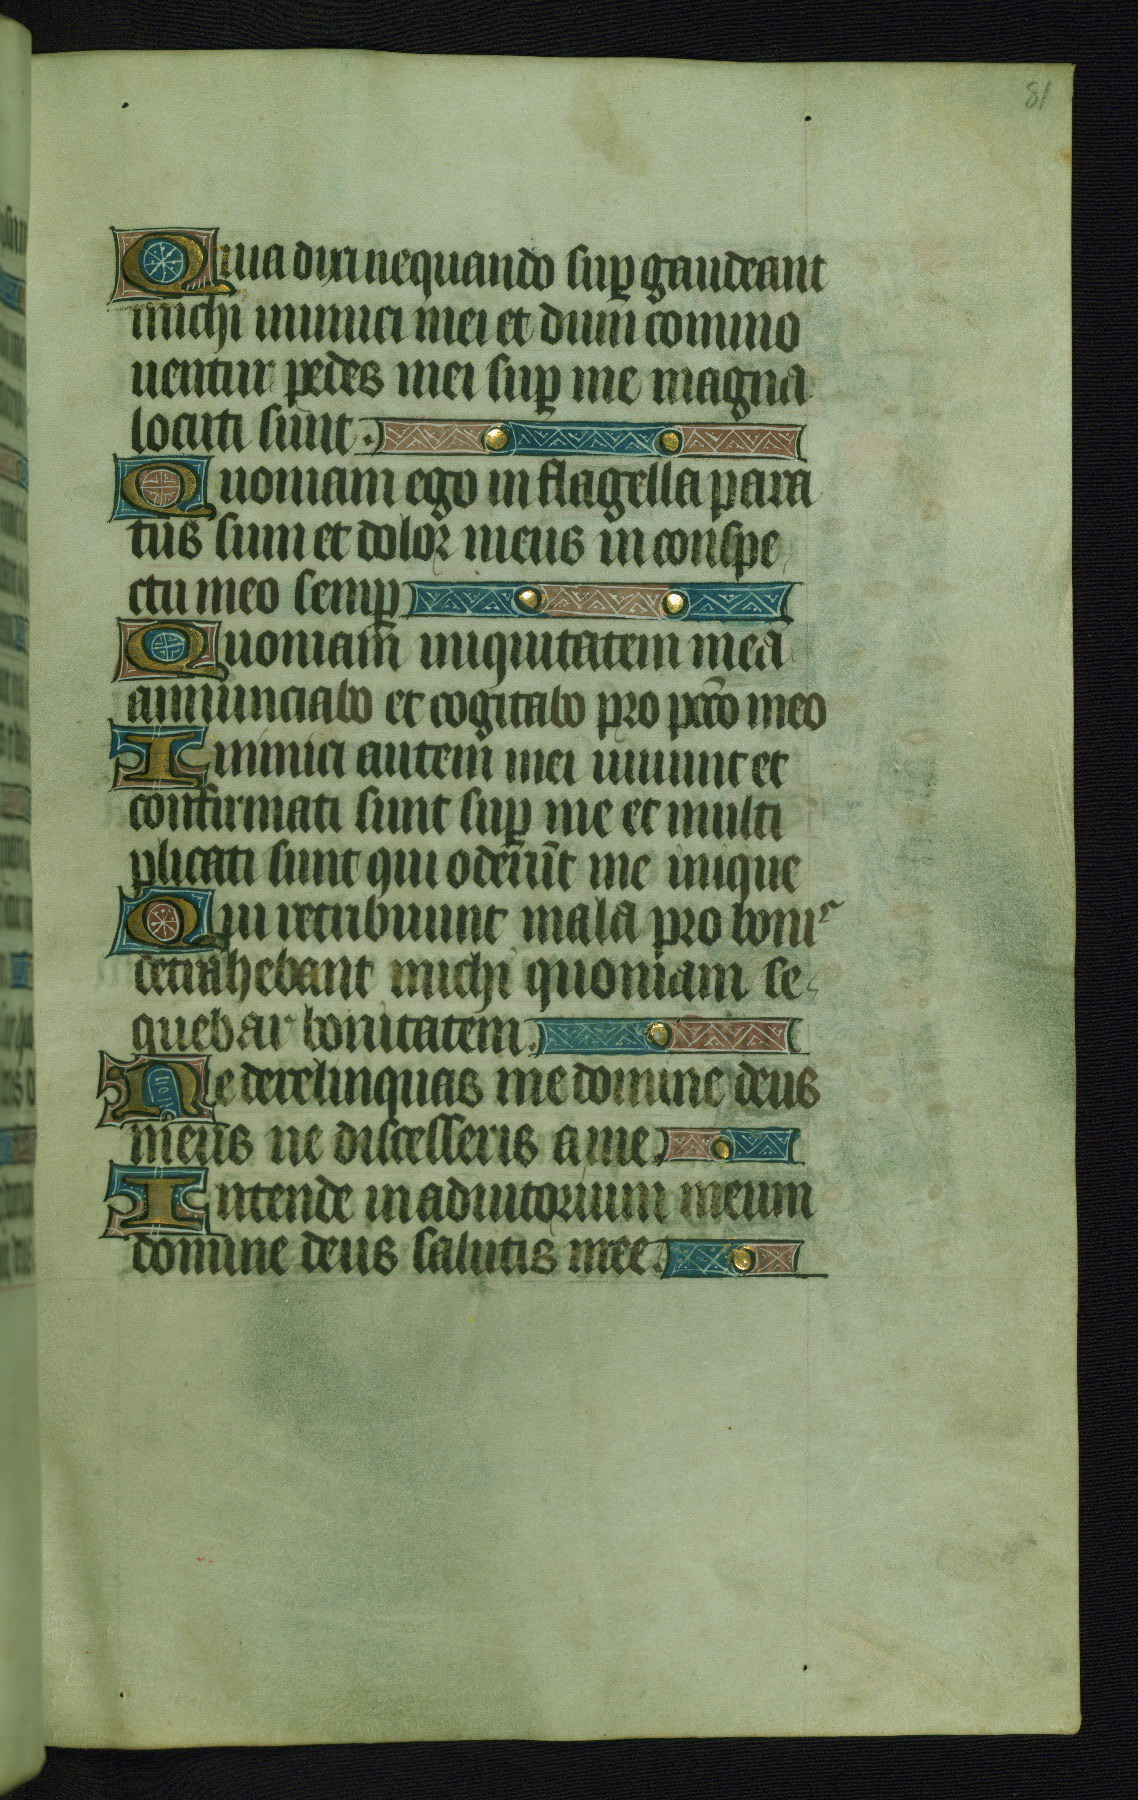 81
Quia dixi nequando sup gaudeant
michi inimici mei et dum commo
uentur pedes mei sup me magna
locuti sunt.
Quoniam ego in flagella para
tus sum et dolor meus in conspe
ctu meo semp
Quoniam iniquitatem meā
annunciabo et cogitabo pro pctō meo
Inimici autem mei uiuunt et
confirmati sunt sup me et multi
plicati sunt qui oderūt me inique
Qui retribuunt mala pro bonis
detrahebant michi quoniam se
quebar bonitatem.
Ne derelinquas me domine deus
meus ne discesseris a me.
Intende in adiutorium meum
domine deus salutis mee.